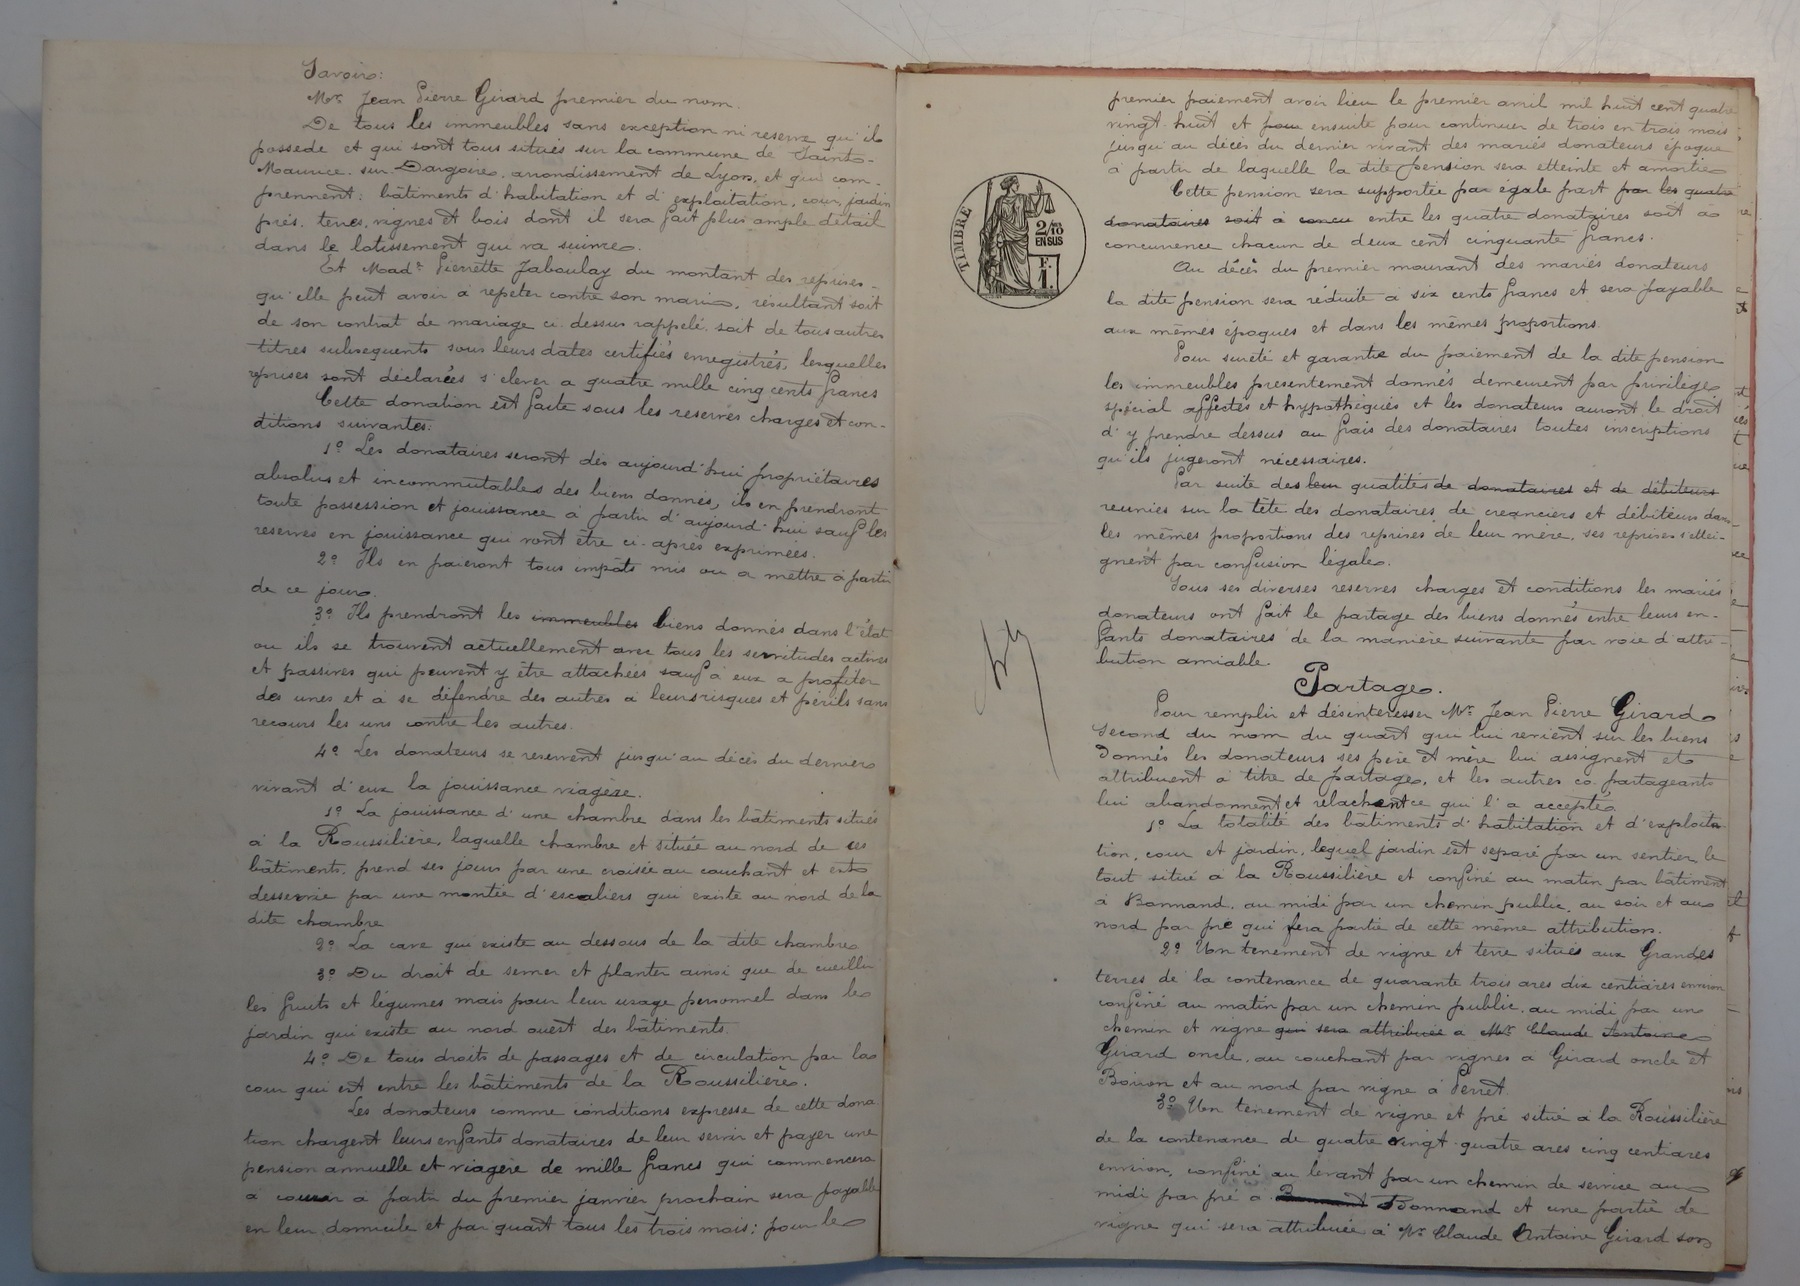 Savoir:
Mr. Jean Pierre Girard premier du nom.
De tous les immeubles sans exception ni reserve qu'il
possede et qui sont tous situés sur la commune de Sainto-
Maurice-sur-Dargoire, arrondissement de Lyon, et qui com-
prennent: bâtiments d'habitation et d'exploitation, cour, jardin
prés, terres, vignes et bois dont il sera fait plus ample détail
dans le lotissement qui va suivre.
Et Made Pierrette Jaboulay du montant des reprises-
qu'elle peut avoir à repeter contre son mari, résultant soit
de son contrat de mariage ci-dessus rappelé, soit de tous autres
titres subsequents sous leurs dates certifiés enregistrés, lesquelles
reprises sont déclarées s'elever a quatre mille cinq cents francs
Cette donation est faite sous les reserves charges et con-
ditions suivantes:
1º Les donataires seront dès aujourd'hui propriétaires
absolus et incommutables des biens donnés, ils en prendront
toute possession et jouissance à partir d'aujourd'hui sauf les
reserves en jouissance qui vont être ci-après exprimées.
2º Ils en paieront tous impôts mis ou a mettre à partir
de ce jour.
3º Ils prendront les immeubles biens donnés dans l'état
ou ils se trouvent actuellement avec tous les servitudes actives
et passives qui peuvent y être attachées sauf à eux a profiter
des unes et à se défendre des autres à leurs risques et périls sans
recours les uns contre les autres.
4º Les donateurs se reservent jusqu'au décès du dernier
vivant d'eux la jouissance viagère.
1º La jouissance d'une chambre dans les bâtiments situés
à la Roussilière, laquelle chambre et située au nord de ces
bâtiments, prend ses jours par une croisée au couchant et est
desservie par une montée d'escaliers qui existe au nord de la
dite chambre
2º La cave qui existe au dessous de la dite chambre
3º Du droit de semer et planter ainsi que de cueillir
les fruits et légumes mais pour leur usage personnel dans le
jardin qui existe au nord ouest des bâtiments.
4º De tous droits de passages et de circulation par la
cour qui est entre les bâtiments de la Roussilière.
Les donateurs comme conditions expresse de cette dona-
tion chargent leurs enfants donataires de leur servir et payer une
pension annuelle et viagère de mille francs qui commencera
à courir à partir du premier janvier prochain sera payable
en leur domicile et par quart tous les trois mois; pour le
TIMBRE
2/10
EN SUS
F.
1.
premier paiement avoir lieu le premier avril mil huit cent quatre
vingt-huit et pour ensuite pour continuer de trois en trois mois
jusqu'au décès du dernier vivant des mariés donateurs époque
à partir de laquelle la dite pension sera etteinte et amortie
Cette pension sera supportée par égale part par les quatre
donataires soit à concu entre les quatre donataires soit à
concurrence chacun de deux cent cinquante francs.
Au décès du premier mourant des mariés donateurs
la dite pension sera réduite a six cents francs et sera payable
aux mêmes époques et dans les mêmes proportions.
Pour sureté et garantie du paiement de la dite pension
les immeubles presentement donnés demeurent par privilège
spécial affectés et hypothéqués et les donateurs auront le droit
d'y prendre dessus au frais des donataires toutes inscriptions
qu'ils jugeront nécessaires.
Par suite des leur qualités de donataires et de débiteurs
reunies sur la tête des donataires de creanciers et débiteurs dans
les mêmes proportions des reprises de leur mère, ses reprises s'ettei-
gnent par confusion légale.
Sous ses diverses reserves charges et conditions les mariés
donateurs ont fait le partage des biens donnés entre leurs en-
fants donataires de la manière suivante par voie d'attri-
bution amiable.
Partage.
Pour remplir et désinteresser Mr. Jean Pierre Girard
second du nom du quart qui lui revient sur les biens
donnés les donateurs ses père et mère lui assignent et
attribuent à titre de partage, et les autres co-partageants
lui abandonnent et relachent ce qui l'a accepté
1º La totalité des bâtiments d'habitation et d'exploita-
tion, cour et jardin, lequel jardin est separé par un sentier, le
tout situé à la Roussilière et confiné au matin par bâtiment
à Bonnand, au midi par un chemin public, au soir et au
nord par pré qui fera partie de cette même attribution.
2º Un tenement de vigne et terre situés aux Grandes
terres de la contenance de quarante trois ares dix centiares environ
confiné au matin par un chemin public, au midi par un
chemin et vigne qui sera attribuée a Mr Claude Antoine
Girard oncle, au couchant par vignes a Girard oncle et
Boiron et au nord par vigne à Perret.
3º Un tenement de vigne et pré situé à la Roussilière
de la contenance de quatre vingt-quatre ares cinq centiares
environ, confiné au levant par un chemin de service au
midi par pré a Bonnand et une partie de
vigne qui sera attribuée à Mr Claude Antoine Girard son